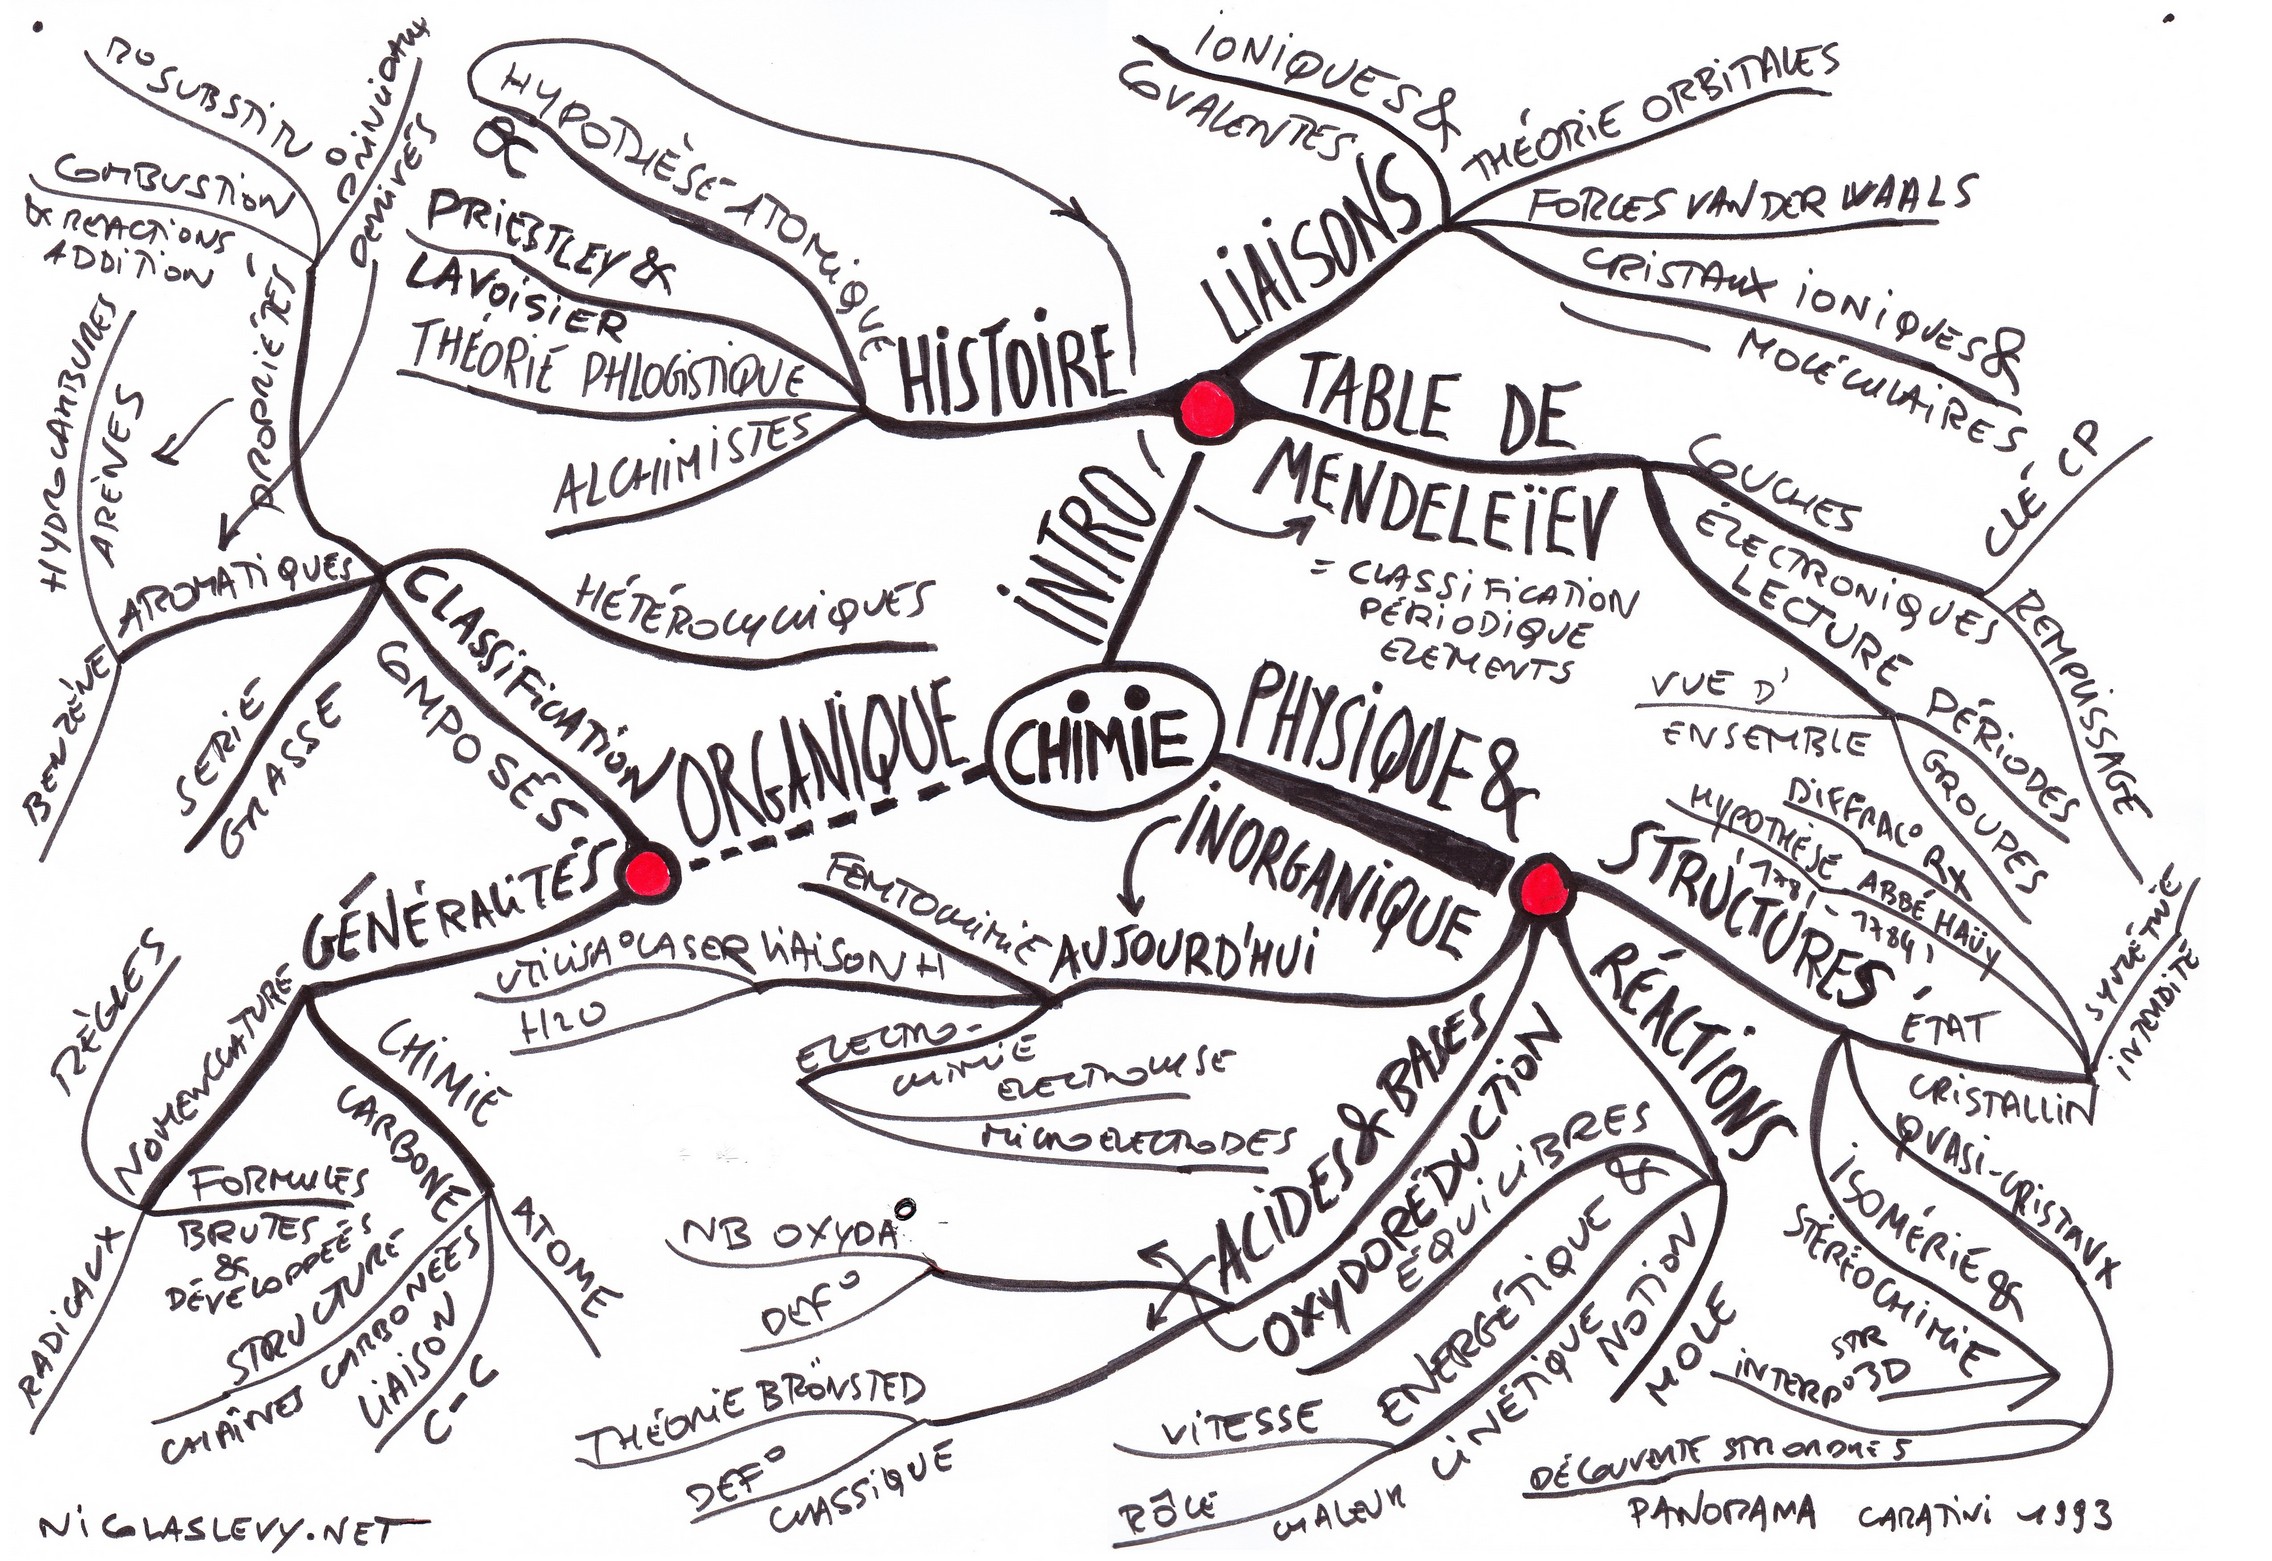 CHIMIE
INTRO
HISTOIRE
HYPOTHÈSE ATOMIQUE
&
PRIESTLEY &
LAVOISIER
THÉORIE PHLOGISTIQUE
ALCHIMISTES
LIAISONS
IONIQUES &
COVALENTES
THÉORIE ORBITALES
FORCES VAN DER WAALS
CRISTAUX IONIQUES &
MOLÉCULAIRES
TABLE DE
MENDELEÏEV
= CLASSIFICATION
PÉRIODIQUE
ELEMENTS
COUCHES
ÉLECTRONIQUES
CLÉ CP
REMPLISSAGE
LECTURE
VUE D'
ENSEMBLE
PÉRIODES
GROUPES
PHYSIQUE &
INORGANIQUE
STRUCTURES
ÉTAT
CRISTALLIN
DIFFRAC° RX
HYPOTHÈSE ABBÉ HAÜY
1781-1784
SYMÉTRIE
QUASI-CRISTAUX
INTERP° 3D
STR
DÉCOUVERTE STR ORDRE 5
ISOMÉRIE &
STÉRÉOCHIMIE
RÉACTIONS
ÉQUILIBRES
&
ÉNERGÉTIQUE
CINÉTIQUE
VITESSE
RÔLE
CHALEUR
NOTION
MOLE
OXYDORÉDUCTION
ACIDES & BASES
NB OXYDA°
DEF°
THÉORIE BRÖNSTED
DEF°
CLASSIQUE
AUJOURD'HUI
FEMTOCHIMIE
LIAISON H
UTILISA° LASER
H2O
ELECTRO-
CHIMIE
ELECTROLYSE
MICROELECTRODES
ORGANIQUE
CLASSIFICATION
COMPOSÉS
HÉTÉROCYCLIQUES
PROPRIÉTÉS
R° SUBSTITU
COMBUSTION
& REACTIONS
ADDITION
DERIVÉS
AROMATIQUES
HYDROCARBURES
ARÈNES
BENZÈNE
SERIE
GRASSE
GÉNÉRALITÉS
NOMENCLATURE
RÈGLES
FORMULES
BRUTES
&
DÉVELOPPÉES
RADICAUX
CHIMIE
CARBONE
ATOME
LIAISON
C-C
STRUCTURE
CHAÎNES CARBONÉES
NICOLASLEVY.NET
PANORAMA CARATINI 1993